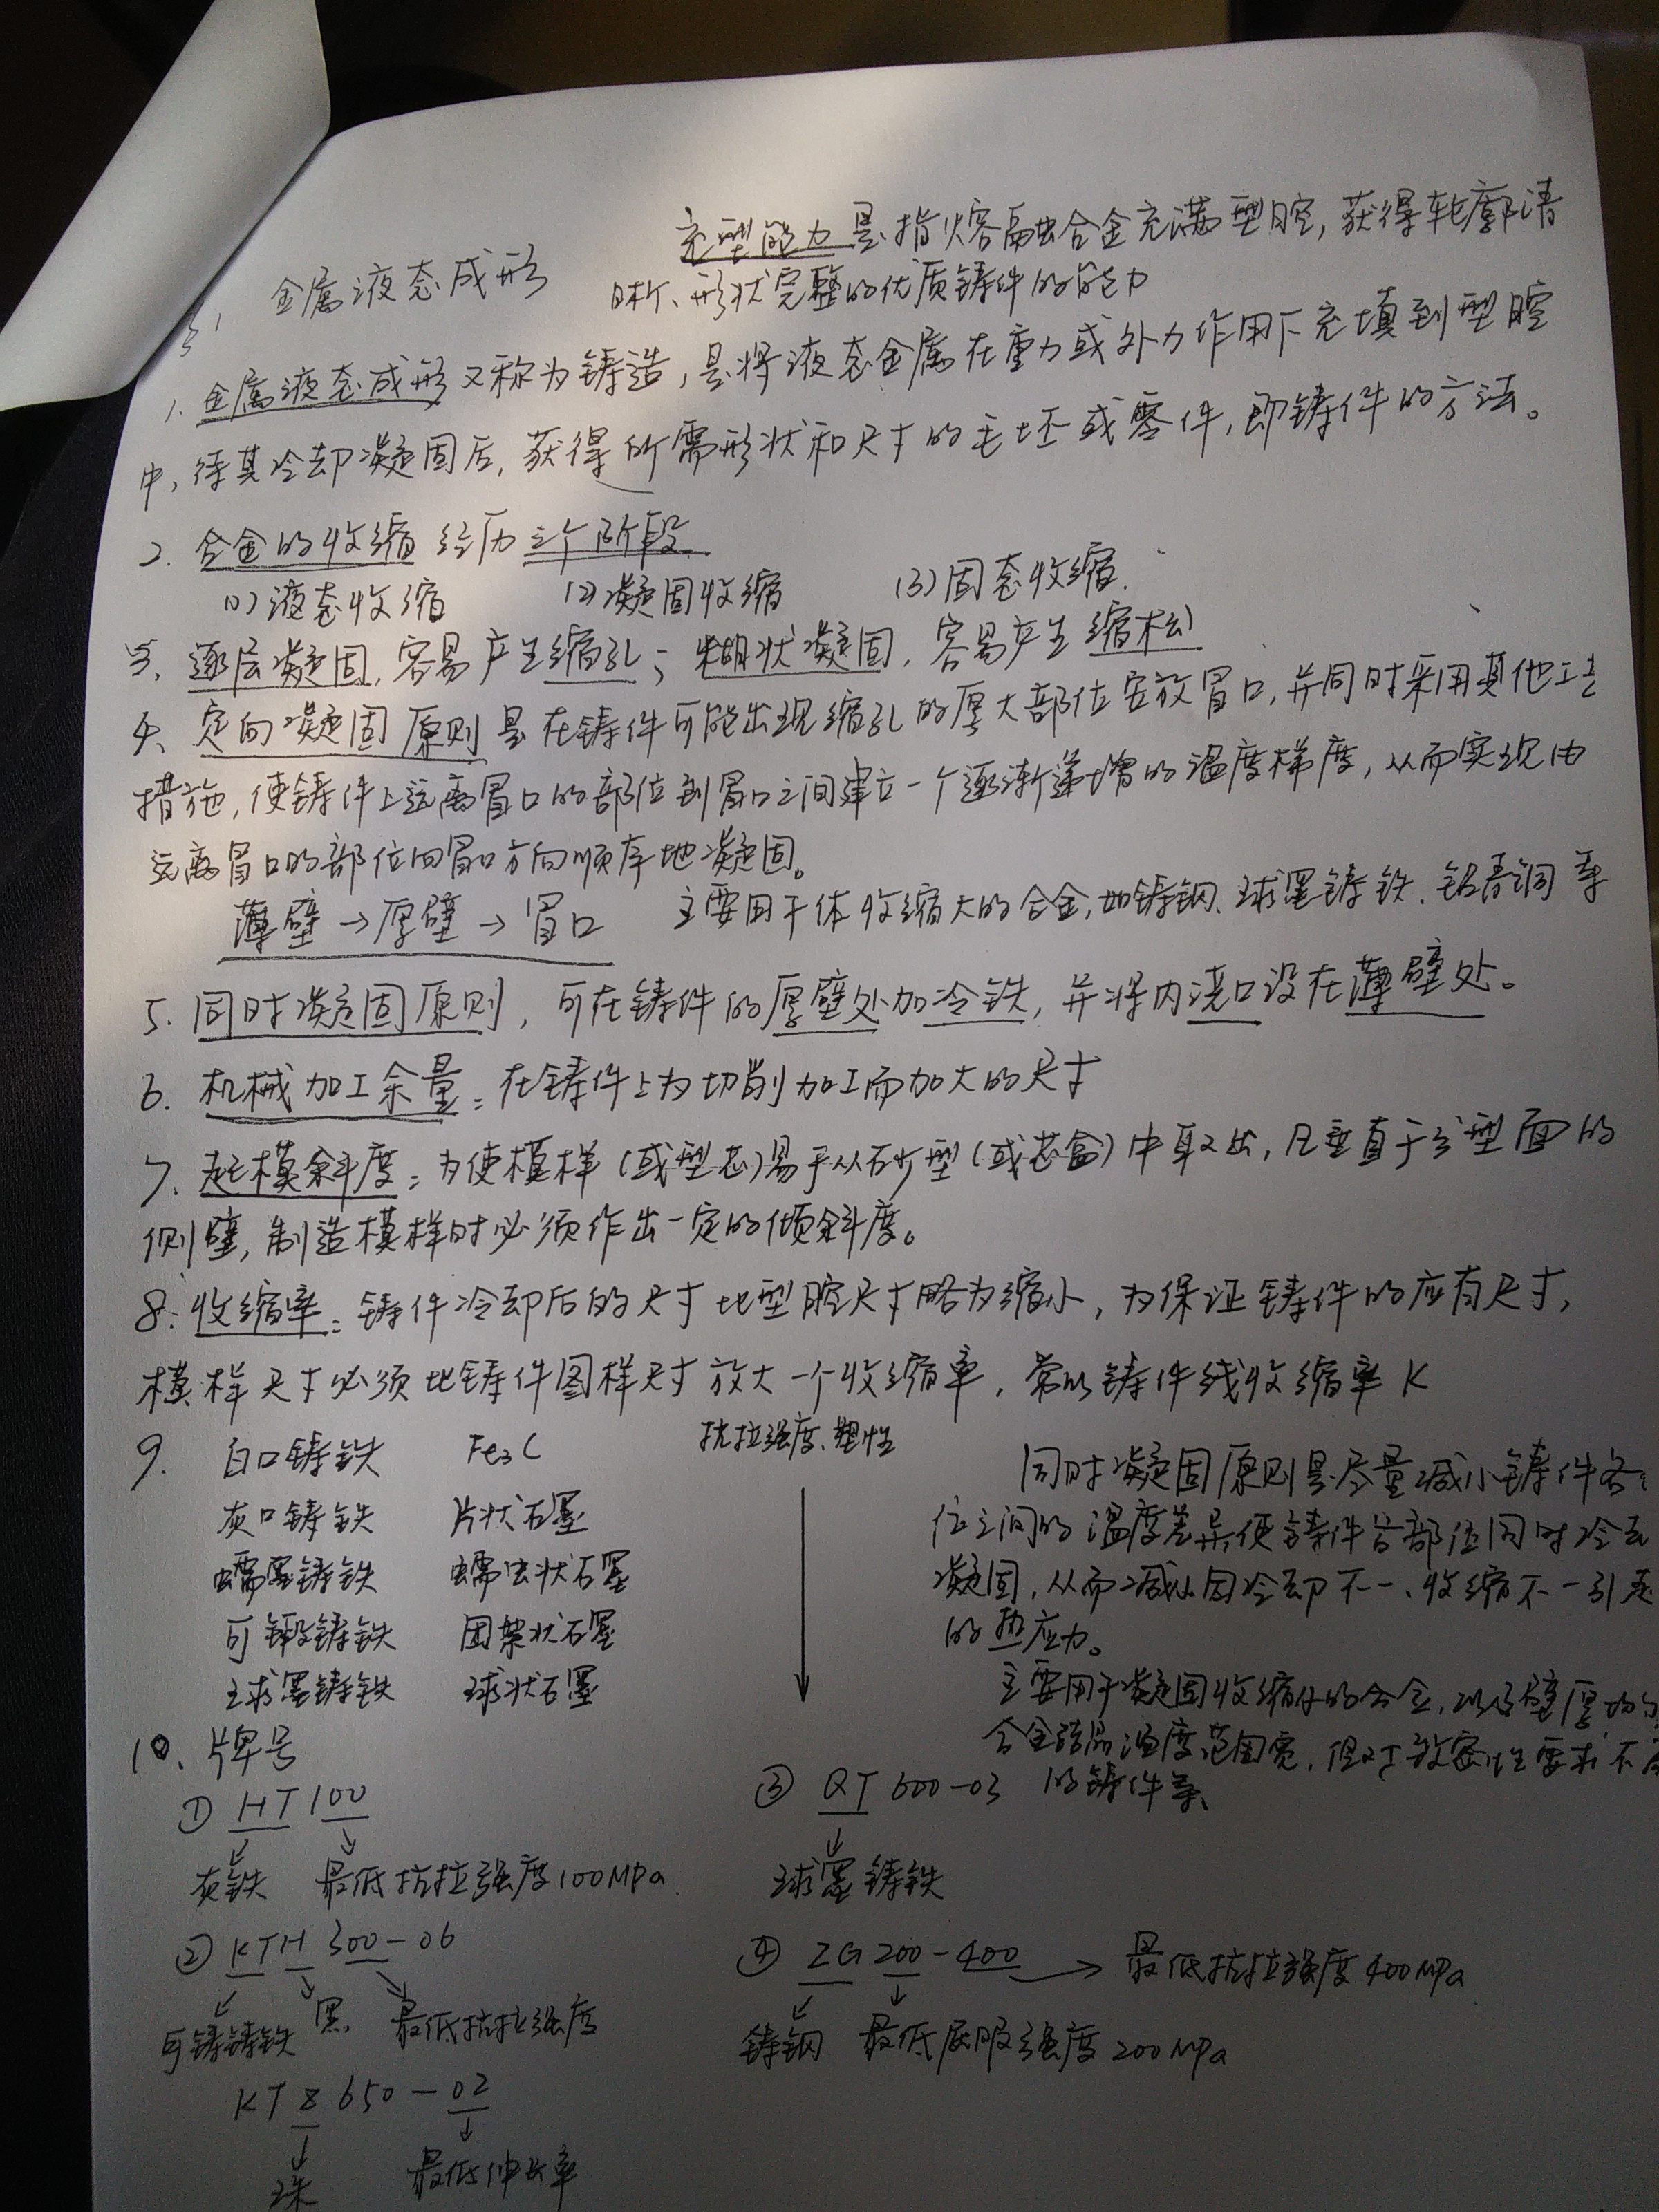 充型能力是指熔融合金充满型腔,获得轮廓清
晰、形状完整的优质铸件的能力
金属液态成形
1. 金属液态成形又称为铸造,是将液态金属在重力或外力作用下充填到型腔
中,待其冷却凝固后,获得所需形状和尺寸的毛坯或零件,即铸件的方法。
2. 合金的收缩 经历三个阶段
(1) 液态收缩 (2) 凝固收缩 (3) 固态收缩.
3、逐层凝固,容易产生缩孔;糊状凝固,容易产生缩松
4、定向凝固原则是在铸件可能出现缩孔的厚大部位安放冒口,并同时采用其他工艺
措施,使铸件上远离冒口的部位到冒口之间建立一个逐渐递增的温度梯度,从而实现由
远离冒口的部位向冒口方向顺序地凝固。
薄壁→厚壁→冒口 主要用于体收缩大的合金,如铸钢、球墨铸铁、铝青铜等
5. 同时凝固原则,可在铸件的厚壁处加冷铁,并将内浇口设在薄壁处。
6. 机械加工余量:在铸件上为切削加工而加大的尺寸
7、起模斜度:为使模样(或型芯)易于从砂型(或芯盒)中取出,凡垂直于分型面的
侧壁,制造模样时必须作出一定的倾斜度。
8. 收缩率:铸件冷却后的尺寸比型腔尺寸略为缩小,为保证铸件的应有尺寸,
模样尺寸必须比铸件图样尺寸放大一个收缩率,常以铸件线收缩率 K
9. 白口铸铁 Fe3C 抗拉强度、塑性
灰口铸铁 片状石墨
蠕墨铸铁 蠕虫状石墨
可锻铸铁 团絮状石墨
球墨铸铁 球状石墨
同时凝固原则是尽量减小铸件各
位之间的温度差异,使铸件各部位同时冷却
凝固,从而减小因冷却不一、收缩不一引起
的热应力。
主要用于凝固收缩小的合金,以及壁厚均匀
合金结晶温度范围宽,但对致密性要求不高
的铸件等、
10、牌号
① HT 100
灰铁 最低抗拉强度100MPa.
② KTH 300-06
可铸铸铁 黑 最低抗拉强度
KTZ 650-02
珠 最低伸长率
③ QT 600-03
球墨铸铁
④ ZG 200-400 → 最低抗拉强度400MPa
铸钢 最低屈服强度200MPa